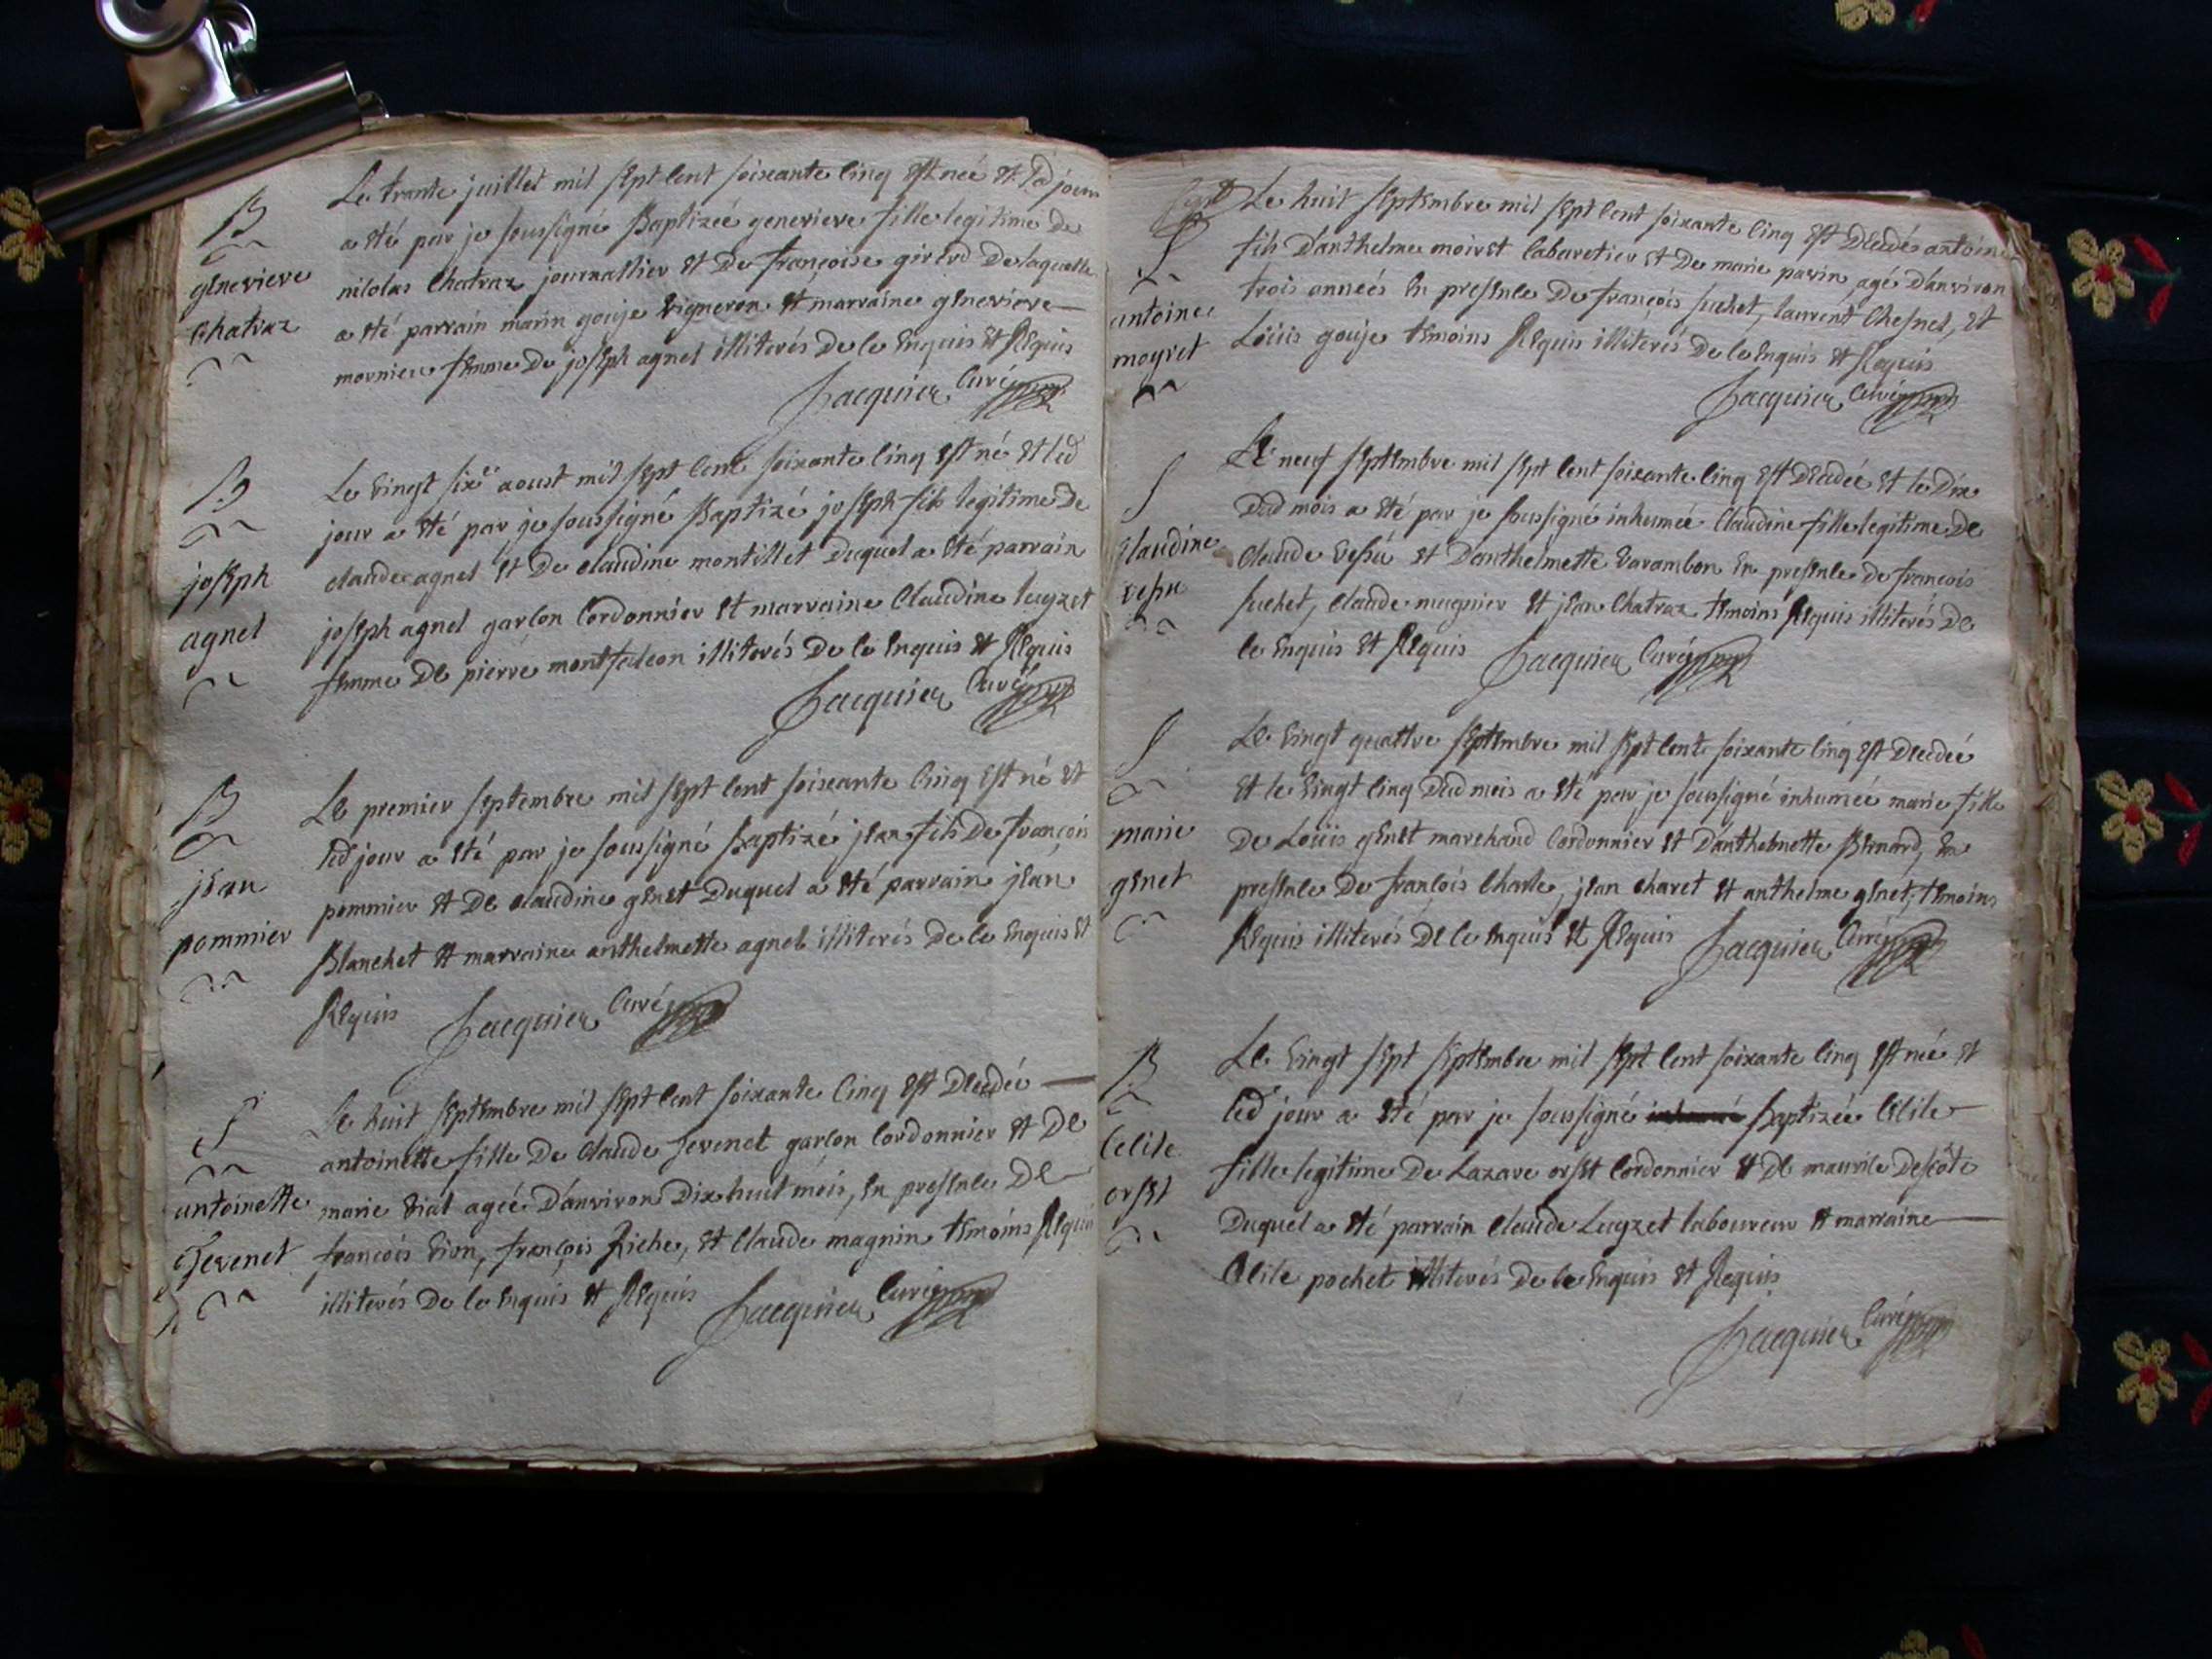 B
genevieve
Chatraz
Le trante juillet mil sept Cent soixante Cinq Est née Et led jour
a Eté par je soussigné Baptizeé genevieve fille legitime de
nicolas Chatraz journaillier Et De françoise girerd De laquelle
a Eté parrain marin gouje vigneron Et marraine genevieve
mornieu femme De joseph agnel illiterés De ce Enquis Et Requis
Jacquier Curé
B
joseph
agnel
Le vingt six aoust mil sept Cent soixante Cinq Est né Et led
jour a Eté par je soussigné Baptizé joseph fils legitime De
claude agnel Et De claudine montillet Duquel a Eté parrain
joseph agnel garcon Cordonnier Et marraine Claudine luyzet
femme De pierre montfalcon illiterés De ce Enquis Et Requis
Jacquier Curé
B
jean
pommier
Le premier septembre mil sept Cent soixante Cinq Est né Et
led jour a Eté par je soussigné Baptizé jean fils De françois
pommier Et De claudine genet Duquel a Eté parrain jean
Blanchet Et marraine anthelmette agnel illiterés De ce Enquis Et
Requis Jacquier Curé
S
antoinette
Tevenet
Le huit septembre mil sept Cent soixante Cinq Est Decedeé
antoinette fille De Claude Tevenet garcon Cordonnier Et De
marie vial ageé D'anviron Dix huit mois, En presence De
francois vion, françois Riche, Et Claude magnin temoins Requis
illiterés De ce Enquis Et Requis Jacquier Curé
S
antoine
moyret
Le huit septembre mil sept Cent soixante Cinq Est Decedés antoine
fils D'anthelme moiret Cabaretier Et De marie parin, agé D'anviron
trois anneés En presence De françois suchet, laurent Chesnel, Et
Loüis gouje temoins Requis illiterés De ce Enquis Et Requis
Jacquier Curé
S
Claudine
vessu
Le neuf septembre mil sept Cent soixante Cinq Est Decedeé Et le Dix
Dud mois a Eté par je soussigné inhumeé Claudine fille legitime De
Claude vessu Et D'anthelmette varambon En presence De francois
suchet, Claude mugnier Et jean Chatraz temoins Requis illiterés De
ce Enquis Et Requis Jacquier Curé
S
marie
genet
Le vingt quattre septembre mil sept Cent soixante Cinq Est Decedeé
Et le vingt Cinq Dud mois a Eté par je soussigné inhumeé marie fille
De Loüis genet marchand Cordonnier Et D'anthelmette Bernard, En
presence De francois Charle, jean Charet Et anthelme genet, temoins
Requis illiterés De ce Enquis Et Requis Jacquier Curé
B
Cecile
orset
Le vingt sept septembre mil sept Cent soixante Cinq Est née Et
led jour a Eté par je soussigné Baptizeé Cecile
fille legitime De Lazare orset Cordonnier Et De maurice Descôte
Duquel a Eté parrain Claude Luyzet laboureur Et marraine
Cecile pochet illiterés De ce Enquis Et Requis
Jacquier Curé